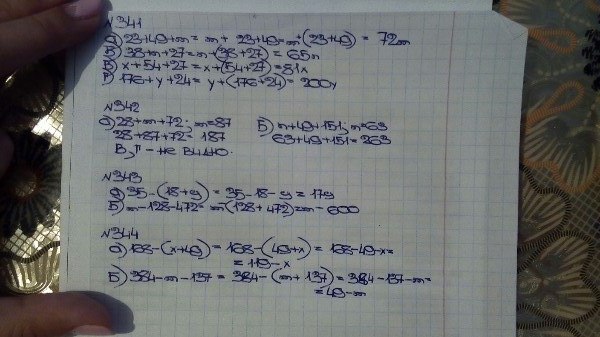 №341
а) 23+49+m= m+ 23+49=m+(23+49) = 72m
Б) 38+n+27=n+(38+27)= 65n
В) x+54+27=x+(54+27)=81x
Г) 176+y+24=y+(176+24)=200y
№342
а) 28+m+72; m=87
28+87+72= 187
Б) n+49+151; n=63
63+49+151=263
В,Г-не видно.
№343
а) 35-(18+y)=35-18-y=17y
Б) m-128-472= m-(128+472)=m-600
№344
а) 168-(x+49)=168-(49+x)=168-49-x=
=119-x
Б) 384-m-137=384-(m+137)=384-137-m=
=49-m